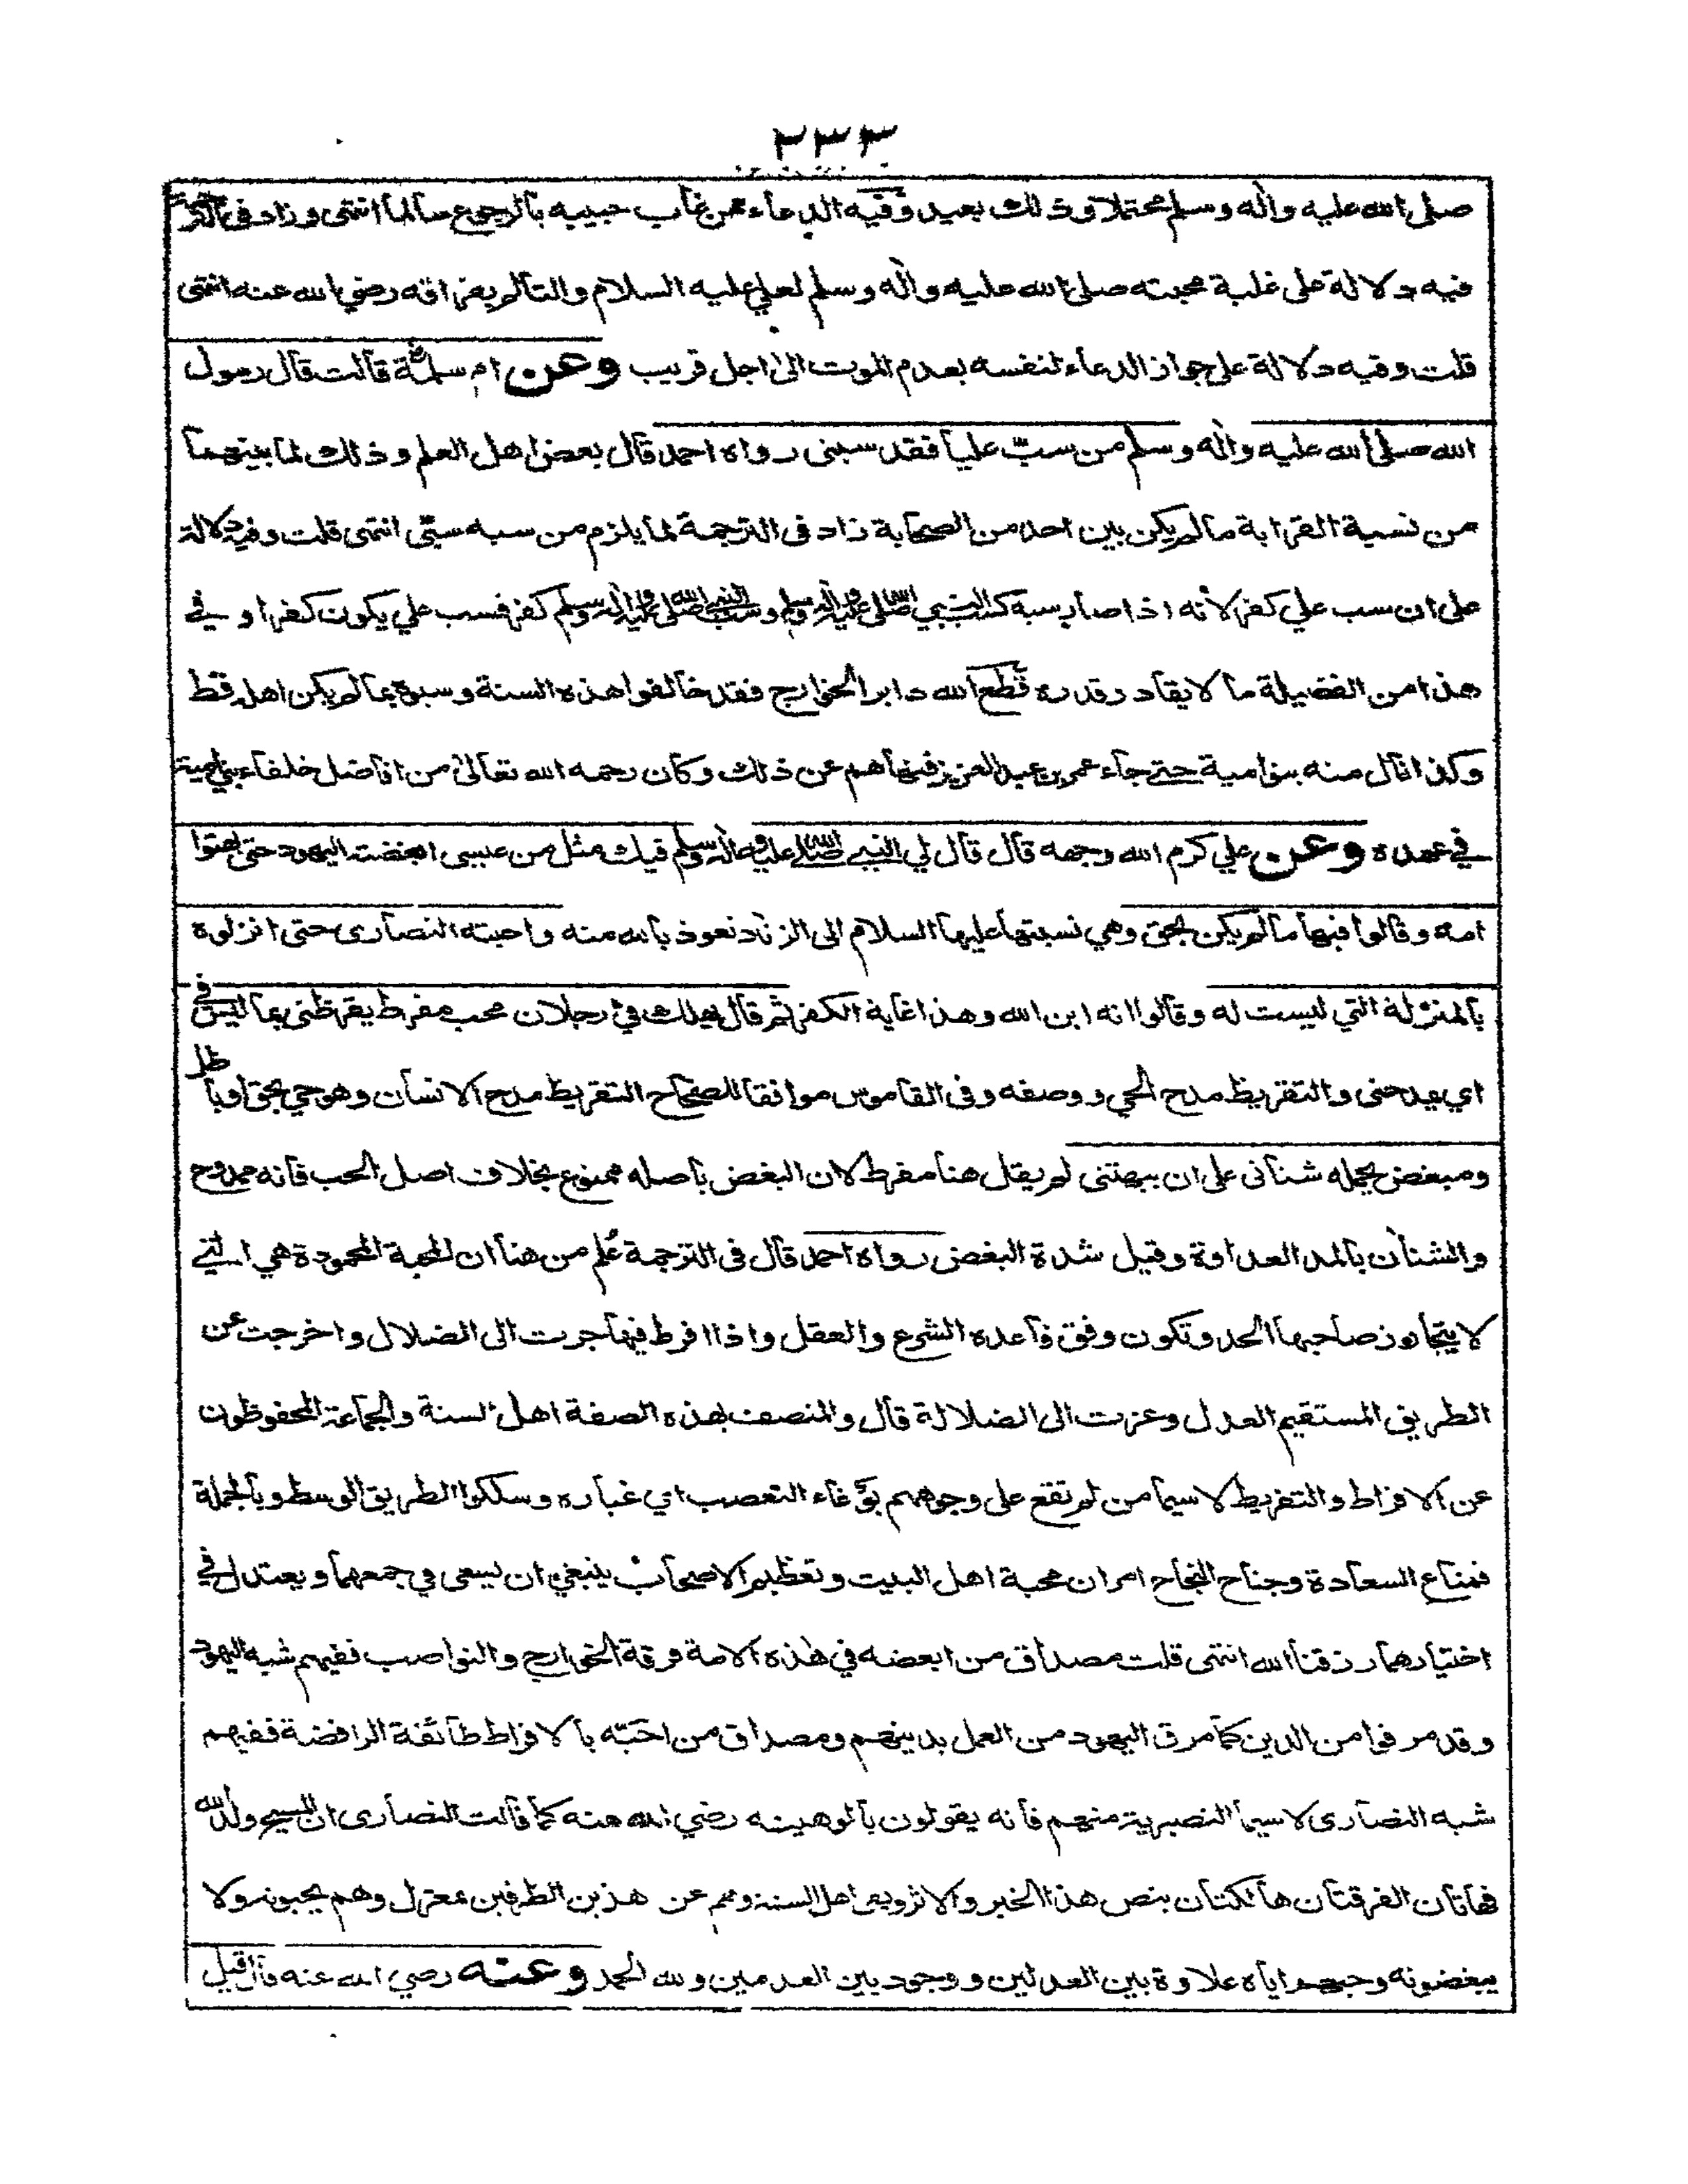 ٢٣٣
صلى الله عليه واٰله وسلم محتملا وذلك بعيد وفيه الدعاء ممن غاب حبيبه بالرجوع سالما انتهى وزاد في الترجمة
فيه دلالة على غلبة محبته صلى الله عليه واٰله وسلم لعلي عليه السلام والتألم بفراقه رضي الله عنه انتهى
قلت وفيه دلالة على جواز الدعاء لنفسه بعدم الموت الى اجل قريب وعن ام سلمة قالت قال رسول
الله صلى الله عليه واٰله وسلم من سبّ عليا فقد سبني رواه احمد قال بعض اهل العلم وذلك لما بينهما
من نسبة القرابة ما لم يكن بين احد من الصحابة زاد في الترجمة لما يلزم من سبه سبّي انتهى قلت وفيه دلالة
على ان سب علي كفر لأنه اذا صار سبه كسب النبي صلى الله عليه واٰله وسلم وسب النبي صلى الله عليه واٰله وسلم كفر فسب علي يكون كفرا وفي
هذا من الفضيلة ما لا يقادر قدره قطع الله دابر الخوارج فقد خالفوا هذه السنة وسبوه بما لم يكن اهله قط
وكذا نال منه بنو امية حتى جاء عمر بن عبد العزيز فنهاهم عن ذلك وكان رحمه الله تعالى من افاضل خلفاء بني امية
في عهده وعن علي كرم الله وجهه قال قال لي النبي صلى الله عليه واٰله وسلم فيك مثل من عيسى ابغضته اليهود حتى بهتوا
امه وقالوا فيها ما لم يكن بحق وهي نسبتها عليها السلام الى الزنا نعوذ بالله منه واحبته النصارى حتى انزلوه
بالمنزلة التي ليست له وقالوا انه ابن الله وهذا غاية الكفر ثم قال يهلك في رجلان محب مفرط يقرظني بما ليس في
اي يمدحني والتقريظ مدح الحي ووصفه وفي القاموس موافقا للصحاح التقريظ مدح الانسان وهو حي بحق او باطل
ومبغض يحمله شنآني على ان يبهتني لم يقل هنا مفرط لان البغض باصله ممنوع بخلاف اصل الحب فانه ممدوح
والشنآن بالمد العداوة وقيل شدة البغض رواه احمد قال في الترجمة عُلم من هنا ان المحبة المحمودة هي التي
لا يتجاوز صاحبها الحد وتكون وفق قاعده الشرع والعقل واذا افرط فيها جرت الى الضلال واخرجت عن
الطريق المستقيم العدل وعزت الى الضلالة قال والمنصف بهذه الصفة اهل السنة والجماعة المحفوظون
عن الافراط والتفريط لا سيما من لم تقع على وجوههم بوغاء التعصب اي غباره وسلكوا الطريق الوسط وبالجملة
فمتاع السعادة وجناح النجاح امران محبة اهل البيت وتعظيم الاصحاب ينبغي ان يسعى في جمعهما ويعتدل في
اختيارهما رزقنا الله انتهى قلت مصداق من ابغضه في هذه الامة فرقة الخوارج والنواصب ففيهم شبه اليهود
وقد مرقوا من الدين كما مرق اليهود من العمل بدينهم ومصداق من احبّه بالافراط طائفة الرافضة ففيهم
شبه النصارى لا سيما النصيرية منهم فانه يقولون بالوهيته رضي الله عنه كما قالت النصارى ان المسيح ولد الله
فهاتان الفرقتان هالكتان بنص هذا الخبر والاثر وبقي اهل السنة وهم عن هذين الطرفين بمعزل وهم يحبونه ولا
يبغضونه وحبهم اياه علاوة بين العدلين ووجود بين العدمين ولله الحمد وعنه رضي الله عنه قال قيل